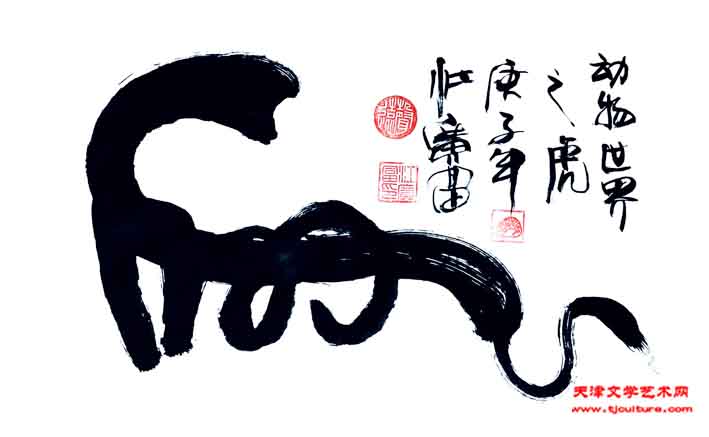 动物世界
之虎
庚子年
天津文学艺术网
www.tjculture.com